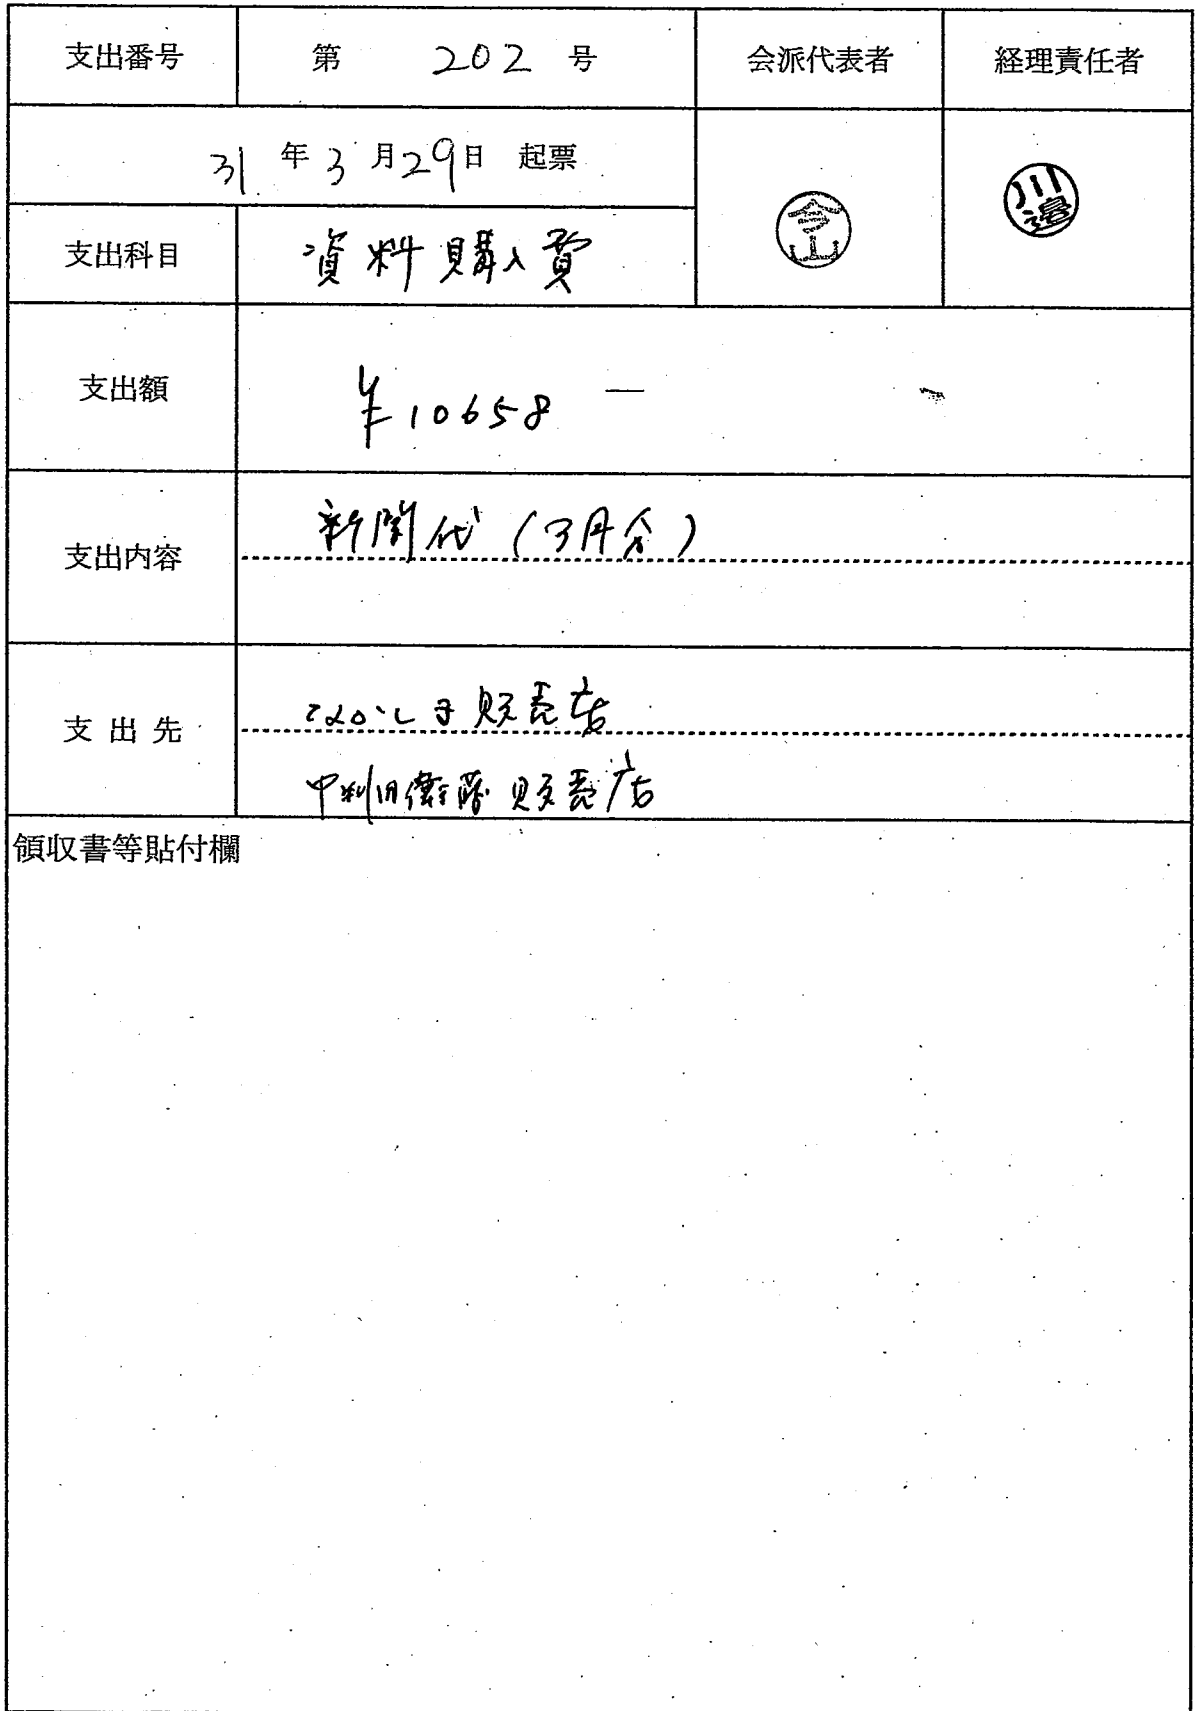 支出番号 第 202 号 会派代表者 経理責任者
31 年 3 月 29 日 起票
今山 川邉
支出科目 資料購入費
支出額 ¥10658 ―
支出内容 新聞代 (3月分)
支出先 販売店
販売店
領収書等貼付欄